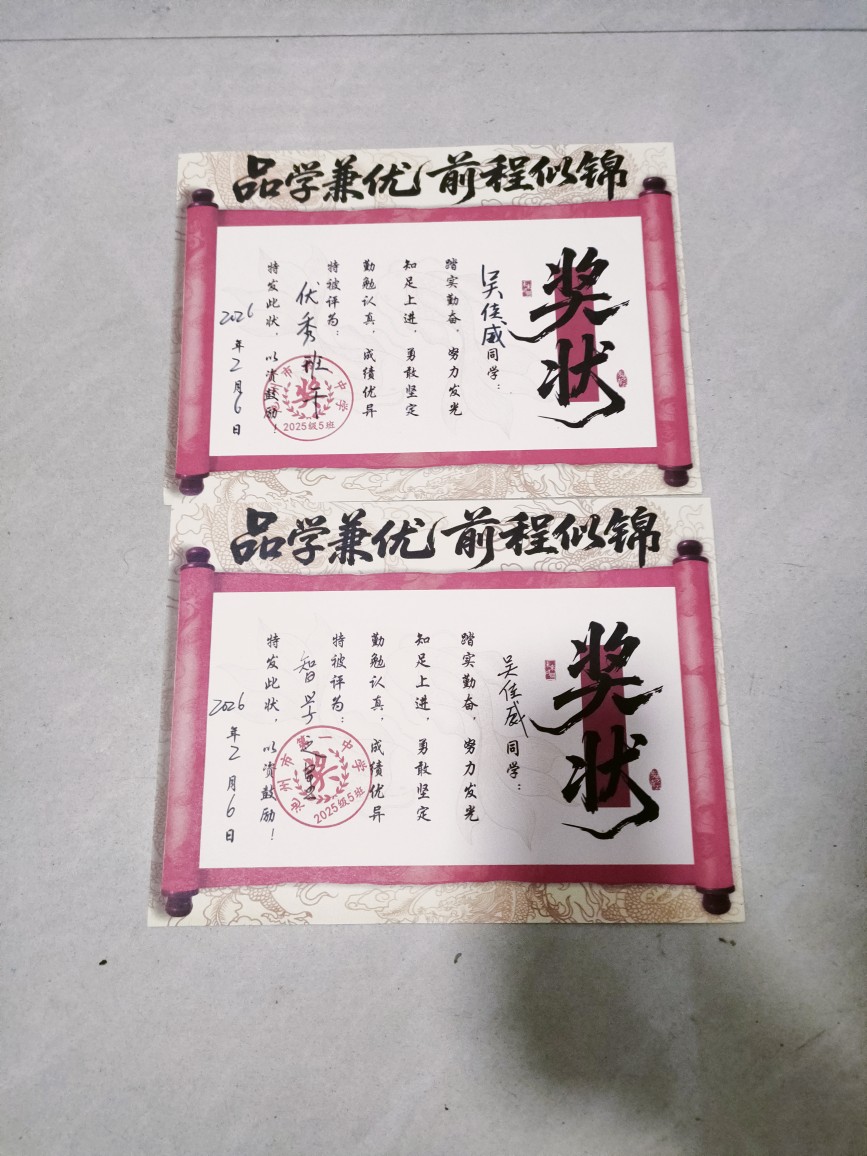 品学兼优 前程似锦
奖状
吴佳威同学：
踏实勤奋，努力发光
知足上进，勇敢坚定
勤勉认真，成绩优异
特被评为：
优秀班干
特发此状，以资鼓励！
2026年2月6日
市
中学
奖
2025级5班
品学兼优 前程似锦
奖状
吴佳威同学：
踏实勤奋，努力发光
知足上进，勇敢坚定
勤勉认真，成绩优异
特被评为：
智学之星
特发此状，以资鼓励！
2026年2月6日
州市第一中学
奖
2025级5班